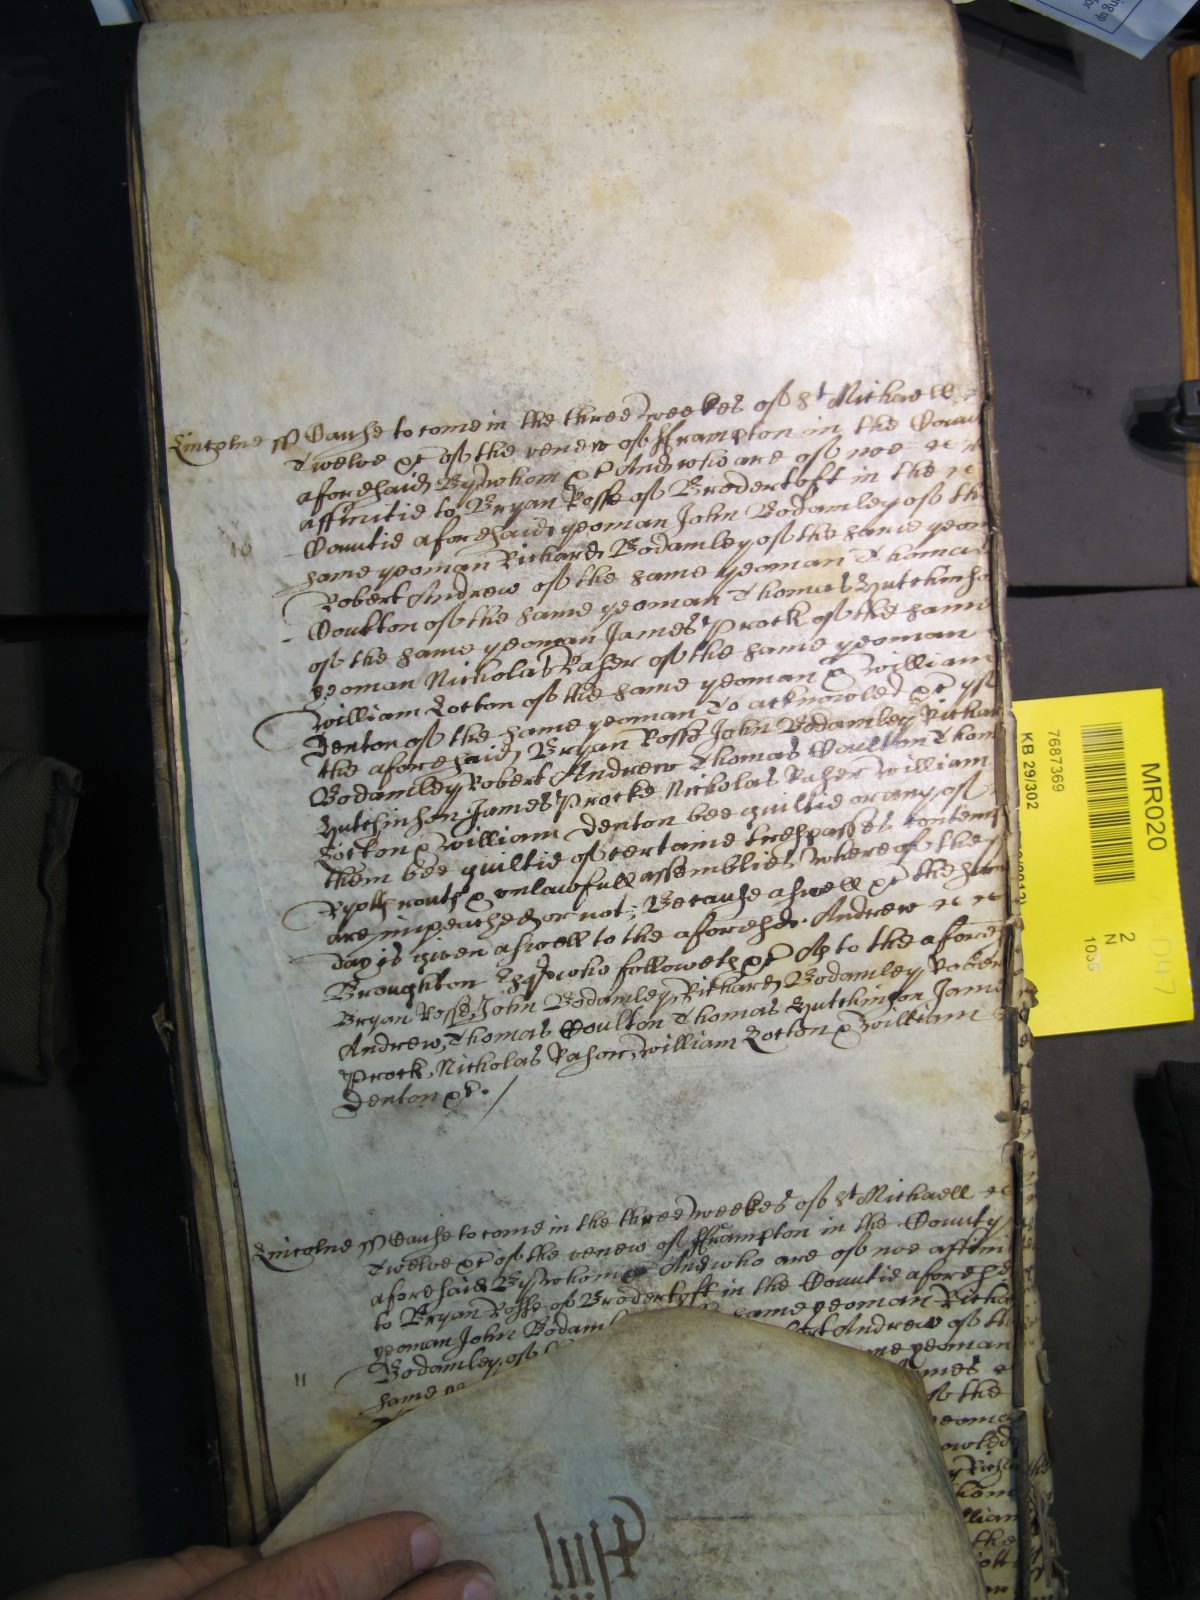 Lincolne ss Cause to come in the three weekes of St Michaell
Twelve &c of the venew of Frampton in the
aforesaid By whom &c And who are of noe
affinitie to Bryan Rosse of Brodertoft in the
10
Countie aforesaid yeoman John Bodamley of the
same yeoman Richard Bodamley of the same yeom
Robert Andrew of the same yeoman Thomas
Coulton of the same yeoman Thomas Hutchinso
of the same yeoman James Prock of the same
yeoman Nicholas of the same yeoman
William Lotton of the same yeoman & William
Denton of the same yeoman To acknowled &c yf
the aforesaid Bryan Rosse John Bodamley Richar
Bodamley Robert Andrew Thomas Coulton Thom
Hutchinson James Procke Nicholas William
Lotton & William Denton bee guiltie or any of
them bee guiltie of certaine trespasses contempt
Ryotts routs & unlawfull assemblies whereof they
are impeached or not; Because aswell &c the same
day is given aswell to the aforesd. Andrew
Broughton Esqr who followeth &c As to the afores
Bryan Rosse John Bodamley Richard Bodamley Rober
Andrew, Thomas Coulton Thomas Hutchinson Jame
Prock, Nicholas William Lotton & William
Denton &c. /
Lincolne ss Cause to come in the three weekes of St Michaell
Twelve &c of the venew of Frampton in the County
aforesaid By whom &c And who are of noe affini
to Bryan Rosse of Brodertoft in the Countie aforesd
yeoman John Bodaml same yeoman Richa
Bodamley of Andrew of th
11
same yeoman
ames
of the
yeoma
Richa
Thom
lliam
the
MR020
7687369
KB 29/302
2
N
1035